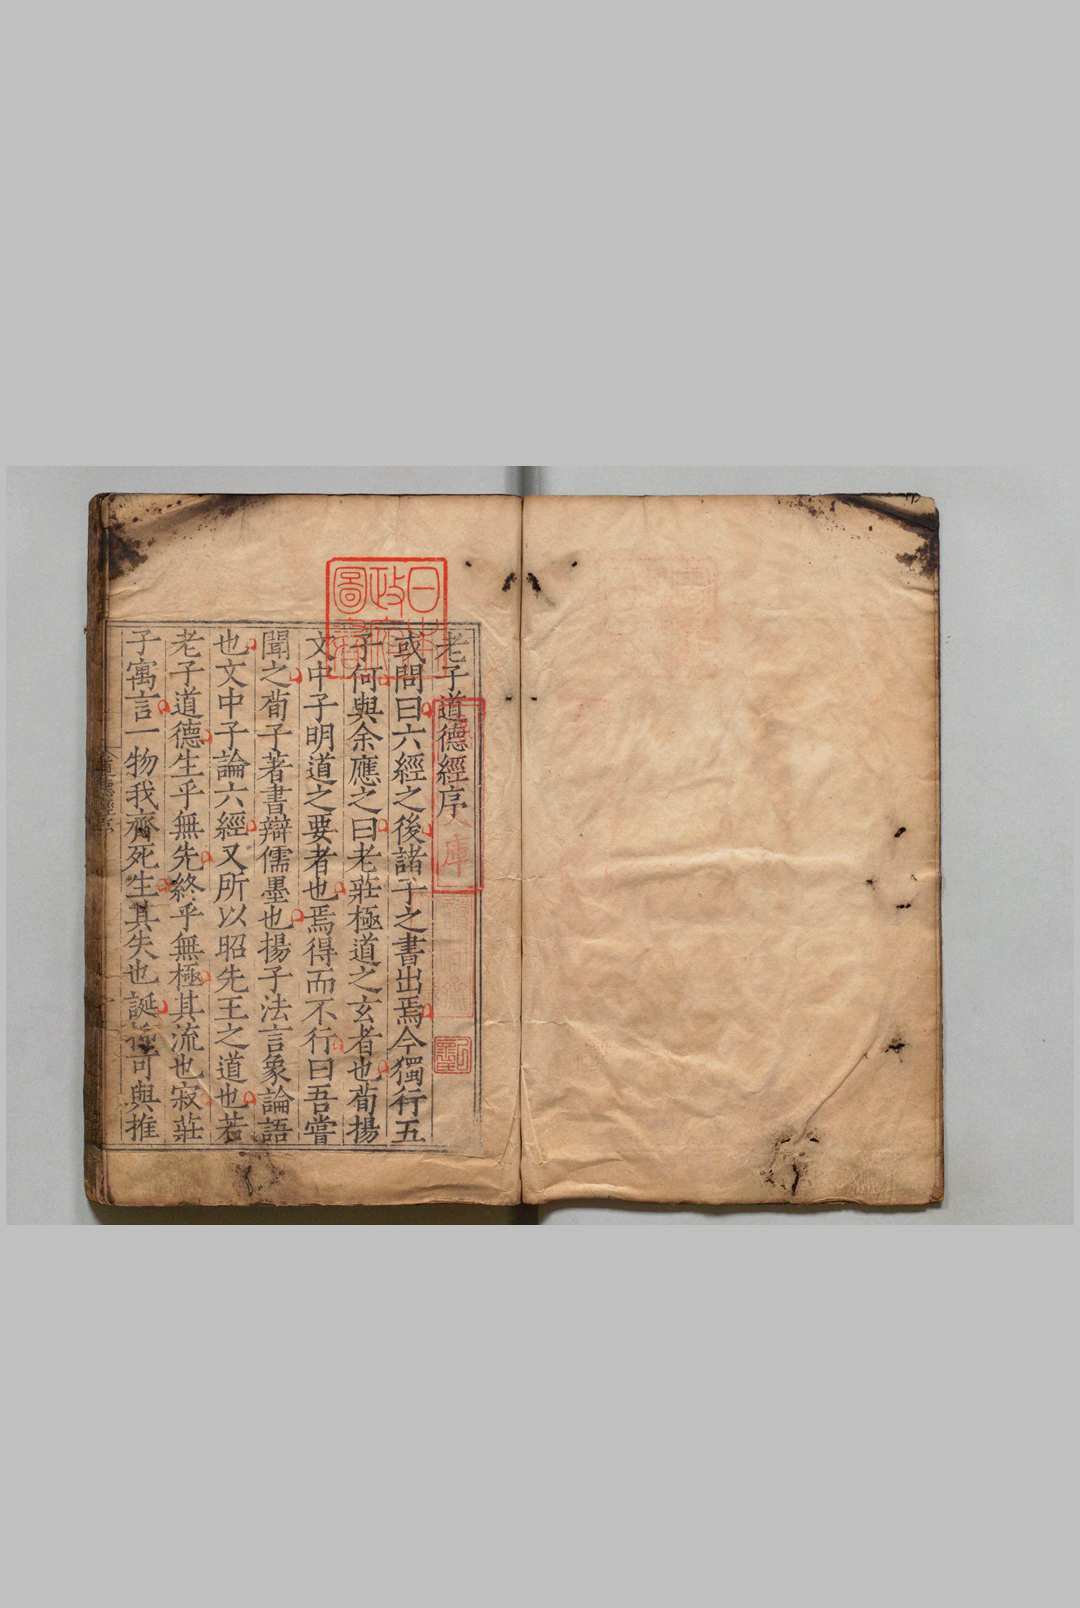 老子道德經序
或問曰六經之後諸子之書出焉今獨行五
子何與余應之曰老莊極道之玄者也荀揚
文中子明道之要者也焉得而不行曰吾嘗
聞之荀子著書辯儒墨也揚子法言象論語
也文中子論六經又所以昭先王之道也若
老子道德生乎無先終乎無極其流也寂莊
子寓言一物我齊死生其失也誕可與推
日本
政府
圖書
庫